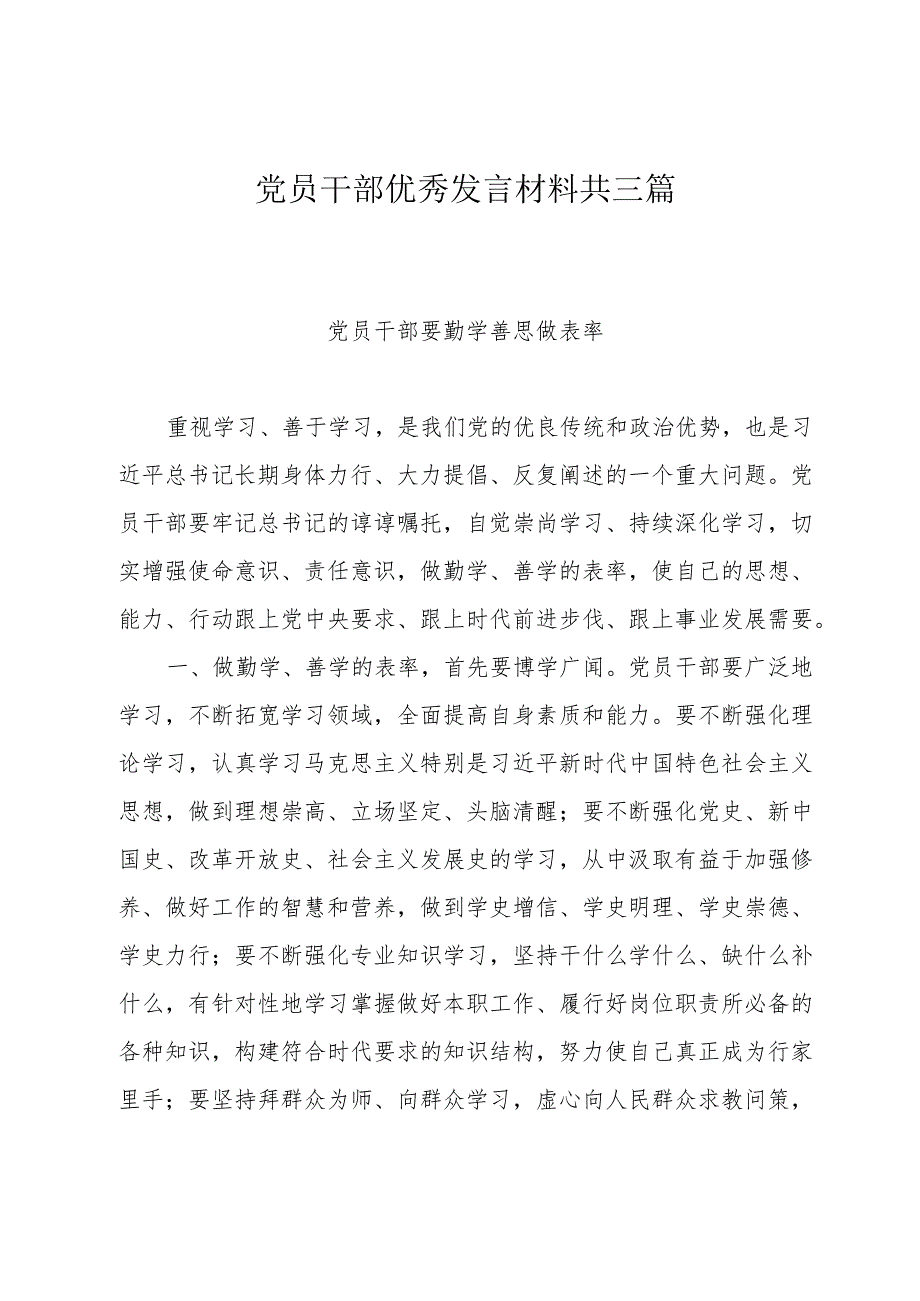 党员干部优秀发言材料共三篇
党员干部要勤学善思做表率
重视学习、善于学习，是我们党的优良传统和政治优势，也是习
近平总书记长期身体力行、大力提倡、反复阐述的一个重大问题。党
员干部要牢记总书记的谆谆嘱托，自觉崇尚学习、持续深化学习，切
实增强使命意识、责任意识，做勤学、善学的表率，使自己的思想、
能力、行动跟上党中央要求、跟上时代前进步伐、跟上事业发展需要。
一、做勤学、善学的表率，首先要博学广闻。党员干部要广泛地
学习，不断拓宽学习领域，全面提高自身素质和能力。要不断强化理
论学习，认真学习马克思主义特别是习近平新时代中国特色社会主义
思想，做到理想崇高、立场坚定、头脑清醒；要不断强化党史、新中
国史、改革开放史、社会主义发展史的学习，从中汲取有益于加强修
养、做好工作的智慧和营养，做到学史增信、学史明理、学史崇德、
学史力行；要不断强化专业知识学习，坚持干什么学什么、缺什么补
什么，有针对性地学习掌握做好本职工作、履行好岗位职责所必备的
各种知识，构建符合时代要求的知识结构，努力使自己真正成为行家
里手；要坚持拜群众为师、向群众学习，虚心向人民群众求教问策，